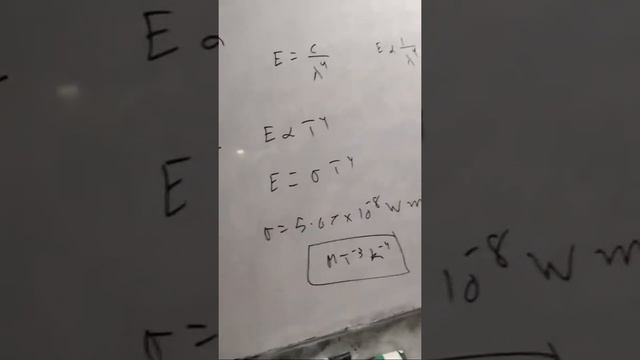 E = c/λ⁴    E α 1/λ⁴
E α T⁴
E = σ T⁴
σ = 5.67×10⁻⁸ W m
M T⁻³ K⁻⁴